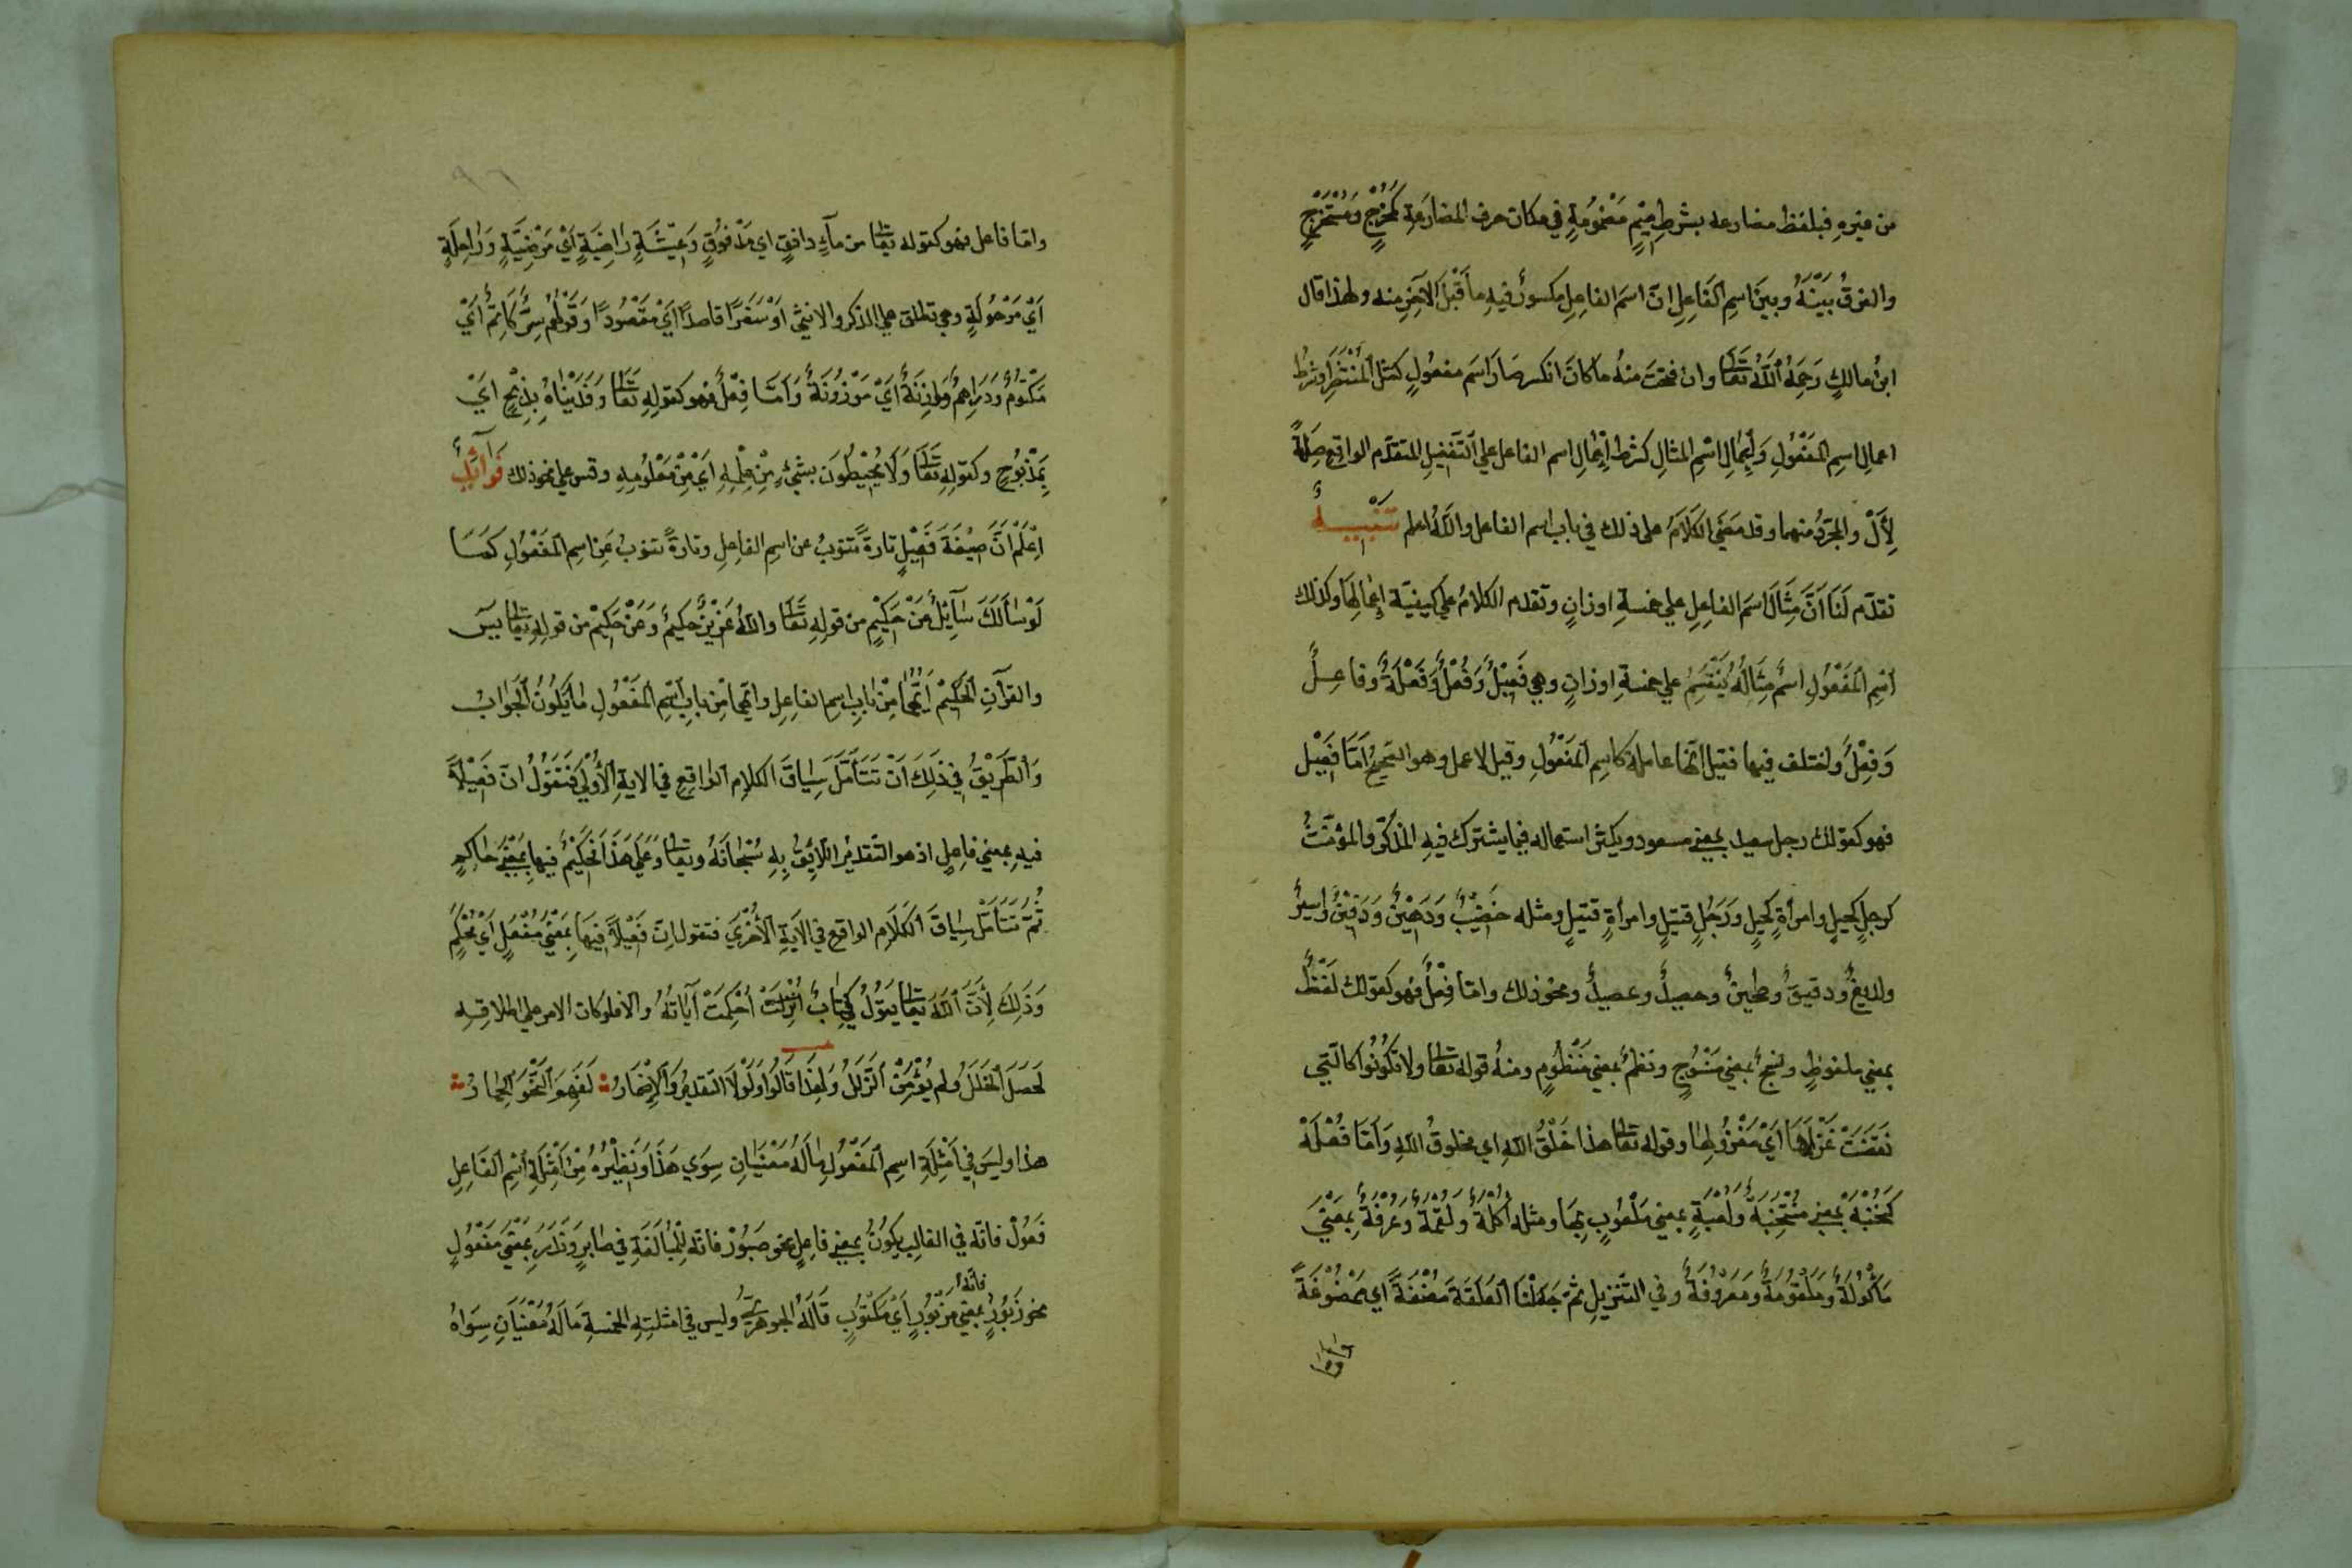 من غيره فبلفظ مضارعه بشرط ميم مضمومة في مكان حرف المضارعة كمخرج ومستخرج
والفرق بينه وبين اسم الفاعل ان اسم الفاعل مكسور فيه ما قبل الآخر منه ولهذا قال
ابن مالك رحمه الله تعالى وان فتحت منه ما كان انكسر صار اسم مفعول كمثل المنتظر وشرط
اعمال اسم المفعول واعمال اسم المثال كشرط اعمال اسم الفاعل على التفصيل المتقدم الواقع صلة
لأل والمجرد منهما وقد مضى الكلام على ذلك في باب اسم الفاعل والله اعلم تنبيه
تقدم لنا ان مثال اسم الفاعل على خمسة اوزان وتقدم الكلام على كيفية اعمالها وكذلك
اسم المفعول اسم مثاله ينقسم على خمسة اوزان وهي فعيل وفعل وفعلة وفاعل
وفعل واختلف فيها فقيل انها عاملة كاسم المفعول وقيل لا عمل وهو الصحيح اما فعيل
فهو كقولك رجل سعيد بمعنى مسعود ويكثر استعماله فيما يشترك فيه المذكر والمؤنث
كرجل كحيل وامرأة كحيل ورجل قتيل وامرأة قتيل ومثله خضيب ودهين ودفين واسير
ولديغ ودقيق وطحين وحصيد وعصيد ونحو ذلك واما فعل فهو كقولك لفظ
بمعنى ملفوظ ونسج بمعنى منسوج ونظم بمعنى منظوم ومنه قوله تعالى ولا تكونوا كالتي
نقضت غزلها اي مغزولها وقوله تعالى هذا خلق الله اي مخلوق الله واما فعلة
كنخبة بمعنى منتخبة ولعبة بمعنى ملعوب بها ومثله اكلة ولقمة وغرفة بمعنى
مأكولة وملقومة ومغروفة وفي التنزيل ثم جعلنا العلقة مضغة اي ممضوغة
واما
واما فاعل فهو كقوله تعالى من ماء دافق اي مدفوق وعيشة راضية اي مرضية وراحلة
اي مرحولة وهي تطلق على المذكر والانثى او سفرا قاصدا اي مقصودا وقولهم سر كاتم اي
مكتوم ودراهم وازنة اي موزونة واما فعل فهو كقوله تعالى وفديناه بذبح اي
بمذبوح وكقوله تعالى ولا يحيطون بشيء من علمه اي من معلومه وقس على نحو ذلك فوائد
اعلم ان صيغة فعيل تارة تنوب عن اسم الفاعل وتارة تنوب عن اسم المفعول كما
لو سألك سائل عن حكيم من قوله تعالى والله عزيز حكيم وعن حكيم من قوله تعالى يس
والقرآن الحكيم ايهما من باب اسم الفاعل وايهما من باب اسم المفعول ما يكون الجواب
والطريق في ذلك ان تتأمل سياق الكلام الواقع في الاية الأولى فتقول ان فعيلا
فيه بمعنى فاعل اذ هو التقدير اللائق به سبحانه وتعالى وعلى هذا الحكيم فيها بمعنى حاكم
ثم تتأمل سياق الكلام الواقع في الآية الأخرى فتقول ان فعيلا فيها بمعنى مفعل اي محكم
وذلك لأن الله تعالى يقول كتاب انزلت احكمت آياته والا فلو كان الامر على اطلاقه
لحصل الخلل ولم يؤمن الزلل ولهذا قالوا ولولا التقدير والاضمار لفهم النحو الحمار
هذا وليس في امثلة اسم المفعول ما له معنيان سوى هذا ونظيره من امثلة اسم الفاعل
فعول فانه في الغالب يكون بمعنى فاعل نحو صبور فانه للمبالغة في صابر وندر بمعنى مفعول
نحو زبور فانه بمعنى مزبور اي مكتوب قاله الجوهري وليس في امثلته الخمسة ما له معنيان سواه